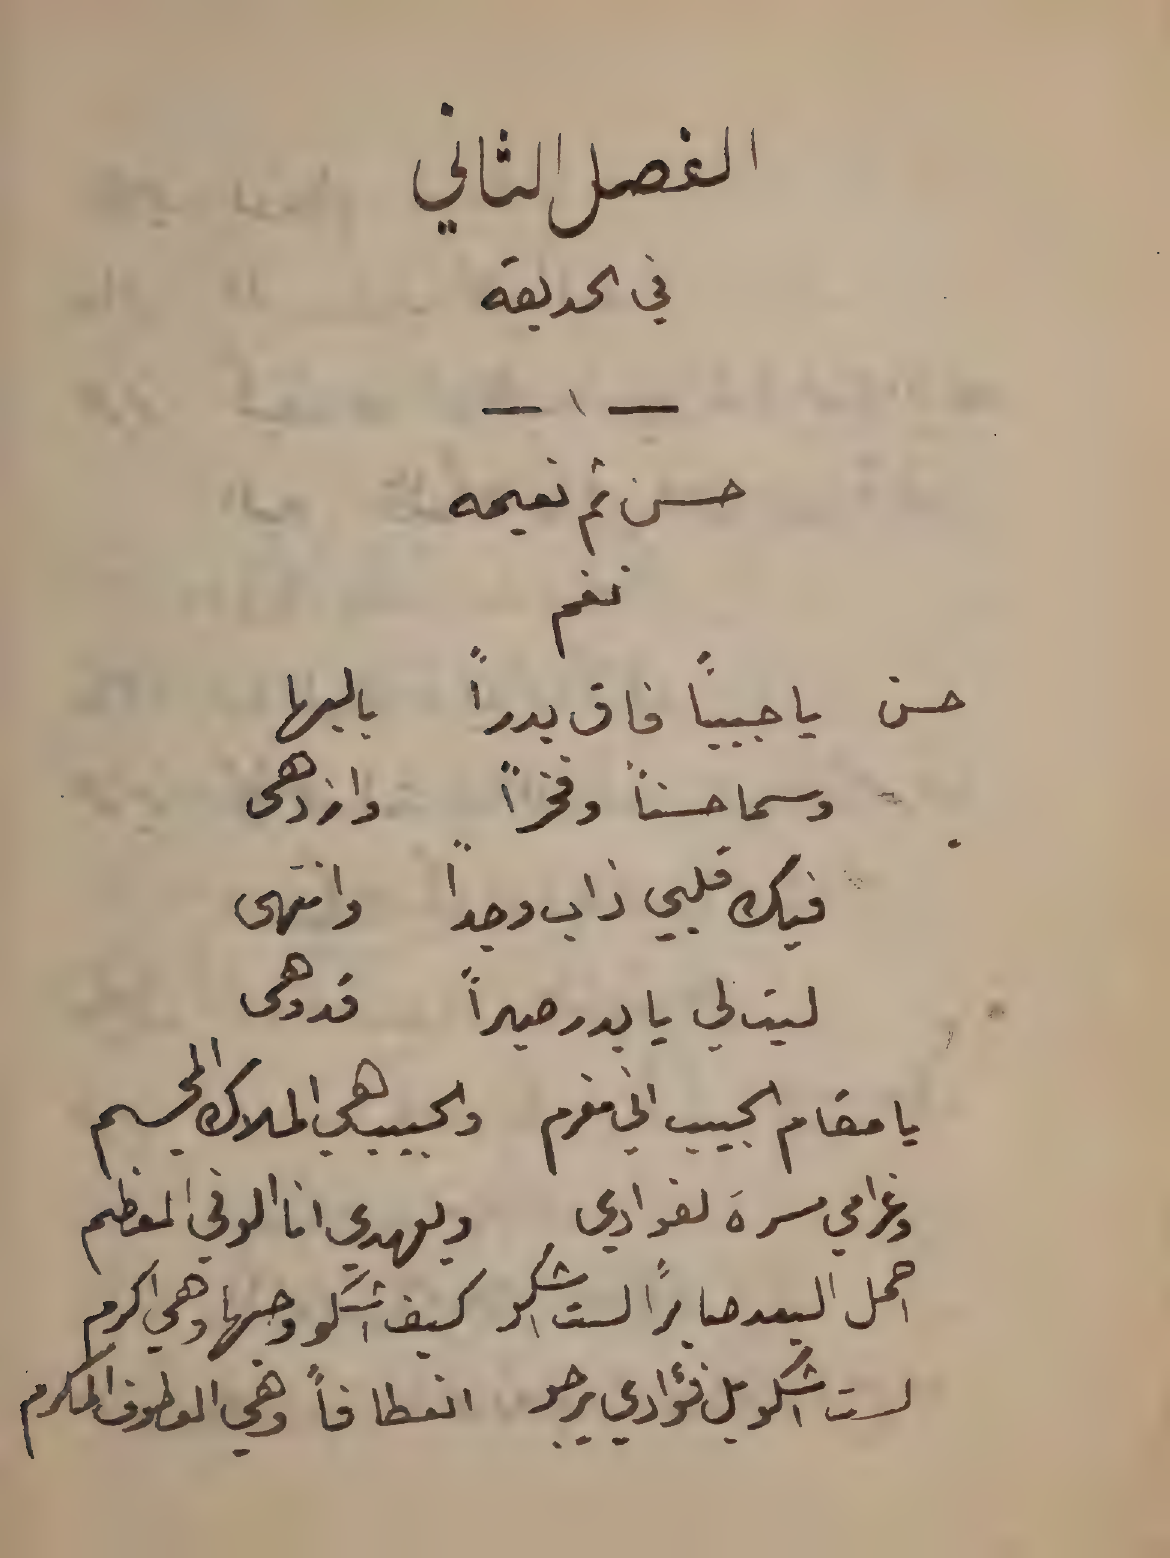 الفصل الثاني
في الحديقة
— ١ —
حسن ثم نعيمه
نغم
حسن يا حبيباً فاق بدراً بالبها
وسما حسناً وفخراً وازدهى
فيك قلبي ذاب وجداً وانتهى
ليت لي يا بدر صبراً قد وهى
يا مقام الحبيب اني مغرم والحبيب هي الملاك المجسم
وغرامي مسرة لفوادي وبعهدي انا الوفي المعظم
احمل البعد صابراً لست اشكو كيف اشكو وحبها وهي اكرم
لست اشكو بل فؤادي يرجو انعطافاً وهي العطوف المكرم